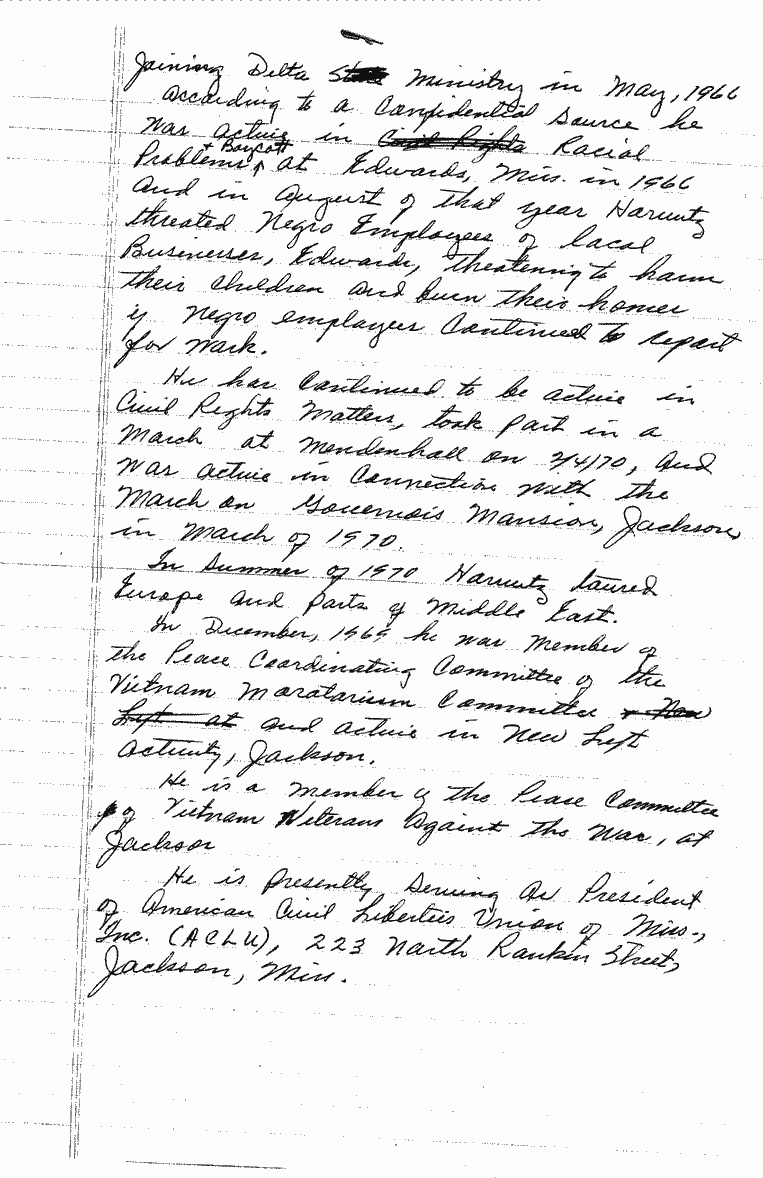 Joining Delta State Ministry in May, 1966
According to a Confidential Source he
was active in Civil Rights Racial
+ Boycott
Problems ^ at Edwards, Miss. in 1966
And in August of that year Horwitz
threated Negro Employees of local
Businesses, Edwards, threatening to harm
their children and burn their homes
if Negro employees Continued to report
for work.
He has Continued to be active in
Civil Rights Matters, took part in a
March at Mendenhall on 2/4/70, and
was active in Connection with the
March on Governors Mansion, Jackson,
in March of 1970.
In Summer of 1970 Horwitz toured
Europe and parts of Middle East.
In December, 1969 he was Member of
the Peace Coordinating Committee of the
Vietnam Moratorium Committee + New
Left at and active in New Left
Activity, Jackson.
He is a member of the Peace Committee
of Vietnam Veterans Against the War, at
Jackson
He is presently serving as President
of American Civil Liberties Union of Miss.,
Inc. (ACLU), 223 North Rankin Street,
Jackson, Miss.